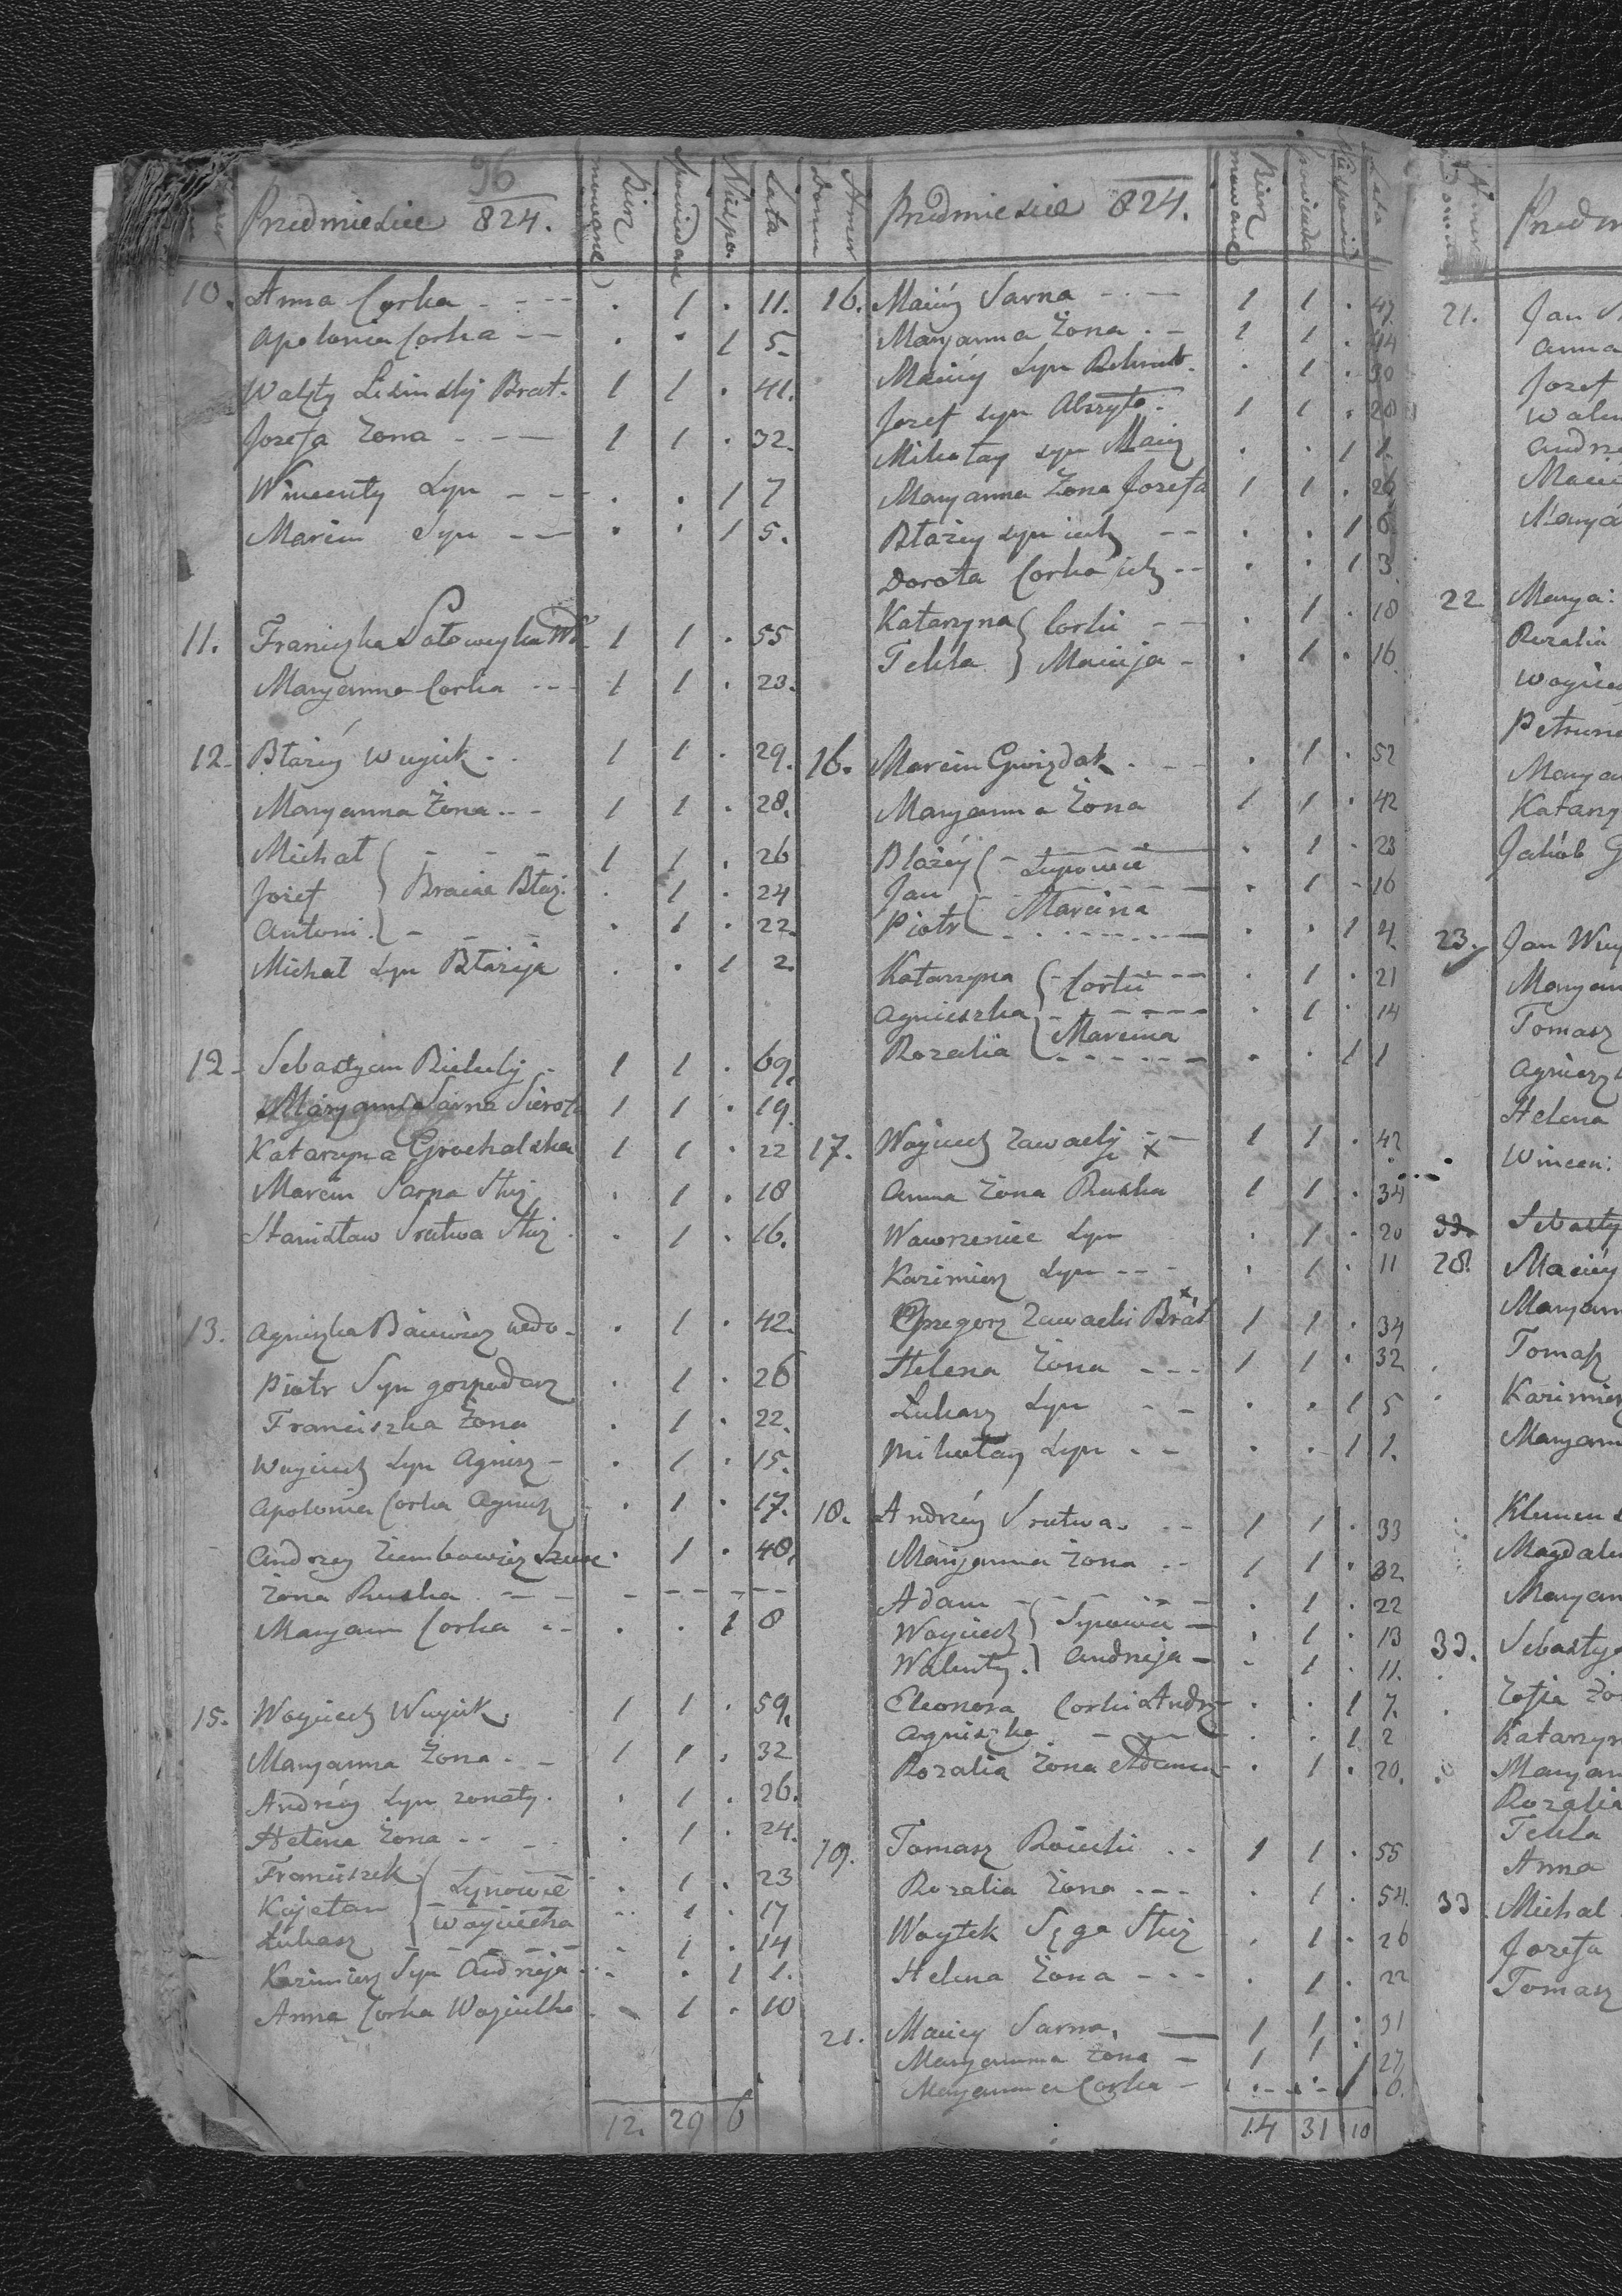 96
Przedmiescie 824.
Bierz mowane
Spowiedane
Niespo.
Lata
10. Anna Corka . 1 . 11.
Apolonia Corka . . 1 5.
Walty Lisinsky Brat. 1 1 . 41.
Jozefa Zona 1 1 . 32.
Wincenty Syn . . 1 7
Marcin Syn . . 1 5.
11. Franciszka 1 1 . 55
Maryanna Corka 1 1 . 23.
12. Błażey Wuyik 1 1 . 29.
Maryanna Żona 1 1 . 28.
Michał 1 1 . 26
Jozef } Bracia Błaż. . 1 . 24
Antoni . 1 . 22.
Michał Syn Błażeja . . 1 2.
12. Sebastyan 1 1 . 69.
Maryanna Sarna Sierota 1 1 . 19.
Katarzyna Grochalska 1 1 . 22
Marcin Sarna Służ. . 1 . 18
Stanisław Srutwa Służ . 1 . 16.
13. Agniszka wdo. . 1 . 42.
Piotr Syn gospodarz . 1 . 26
Franciszka Żona . 1 . 22.
Woyciech Syn Agnisz . 1 . 15.
Apolonia Corka Agnisz . 1 . 17.
Andrzey Ziembowicz . 1 . 48.
Żona Ruska
Maryann Corka . . 1 8
15. Woyciech Wuyik 1 1 . 59.
Maryanna Żona 1 1 . 32
Andrzéy Syn zonaty. . 1 . 26.
Helena Żona . 1 . 24.
Franciszek . 1 . 23
Kajetan } Synowie . 1 . 17
Łukasz Woyciecha . 1 . 14
Kazimierz Syn Andrzeja . . 1 1.
Anna Corka Woyciecha . 1 . 10
12. 29 6
Numer Domu
Przedmiescie 824.
Bierz mowane
Spowiedane
Niespowie
Lata
16. Maciéy Sarna 1 1 . 47.
Maryanna Żona 1 1 . 44
Maciéy Syn . 1 . 30
Jozef syn Abszyto. 1 1 . 28
Mikołay syn Maciej . . 1 1.
Maryanna Żona Jozefa 1 1 . 26
Błażey syn ich . . 1 6.
Dorota Corka ich . . 1 3.
Katarzyna } Corki . 1 . 18
Tekla } Macieja . 1 . 16
16. Marcin Gwizdak . 1 . 52
Maryanna Żona 1 1 . 42
Błażéy Synowie . 1 . 23
Jan . 1 . 16
Piotr Marcina . . 1 4.
Katarzyna Corki . 1 . 21
Agnieszka . 1 . 14
Rozalia Marcina . . 1 1
17. Woyciech Zawacky x 1 1 . 42
Anna Żona Ruska 1 1 . 34
Wawrzeniec Syn . 1 . 20
Kazimierz Syn . 1 . 11
Grzegorz Zawacki Brat x 1 1 . 34
Helena Żona 1 1 . 32
Łukasz Syn . . 1 5
Mikołay Syn . . 1 1.
18. Andrzéy Srutwa 1 1 . 33
Maryanna Żona 1 1 . 32
Adam . 1 . 22
Woyciech } Synowie . 1 . 13
Walenty } Andrzeja . 1 . 11.
Eleonora Corki Andrz . . 1 7.
Agniszka . . 1 2
Rozalia Żona Adama . 1 . 20.
19. Tomasz 1 1 . 55
Rozalia Żona . 1 . 54.
Woytek Sęga Służ . 1 . 26
Helena Żona . 1 . 22
21. Maciey Sarna 1 1 . 31
Maryanna Żona 1 1 27
Maryanna Corka 1 6.
14 31 10
Numer Domu
Przedm
21. Jan
Anna
Jozef
Walen
Andrz
Macie
Marya
22 Marya:
Rozalia
Woycie
Petrune
Maryan
Katarzy
Jakób G
23. Jan Wuy
Maryan
Tomasz
Agniesz
Helena
Wincen:
33. Sebasty
28. Maciéy
Maryann
Tomasz
Kazimierz
Maryann
Klemens
Magdalen
Maryan
33. Sebastya
Zofia Żo
Katarzyn
Maryan
Rozalia
Tekla
Anna
33. Michal
Jozefa
Tomasz